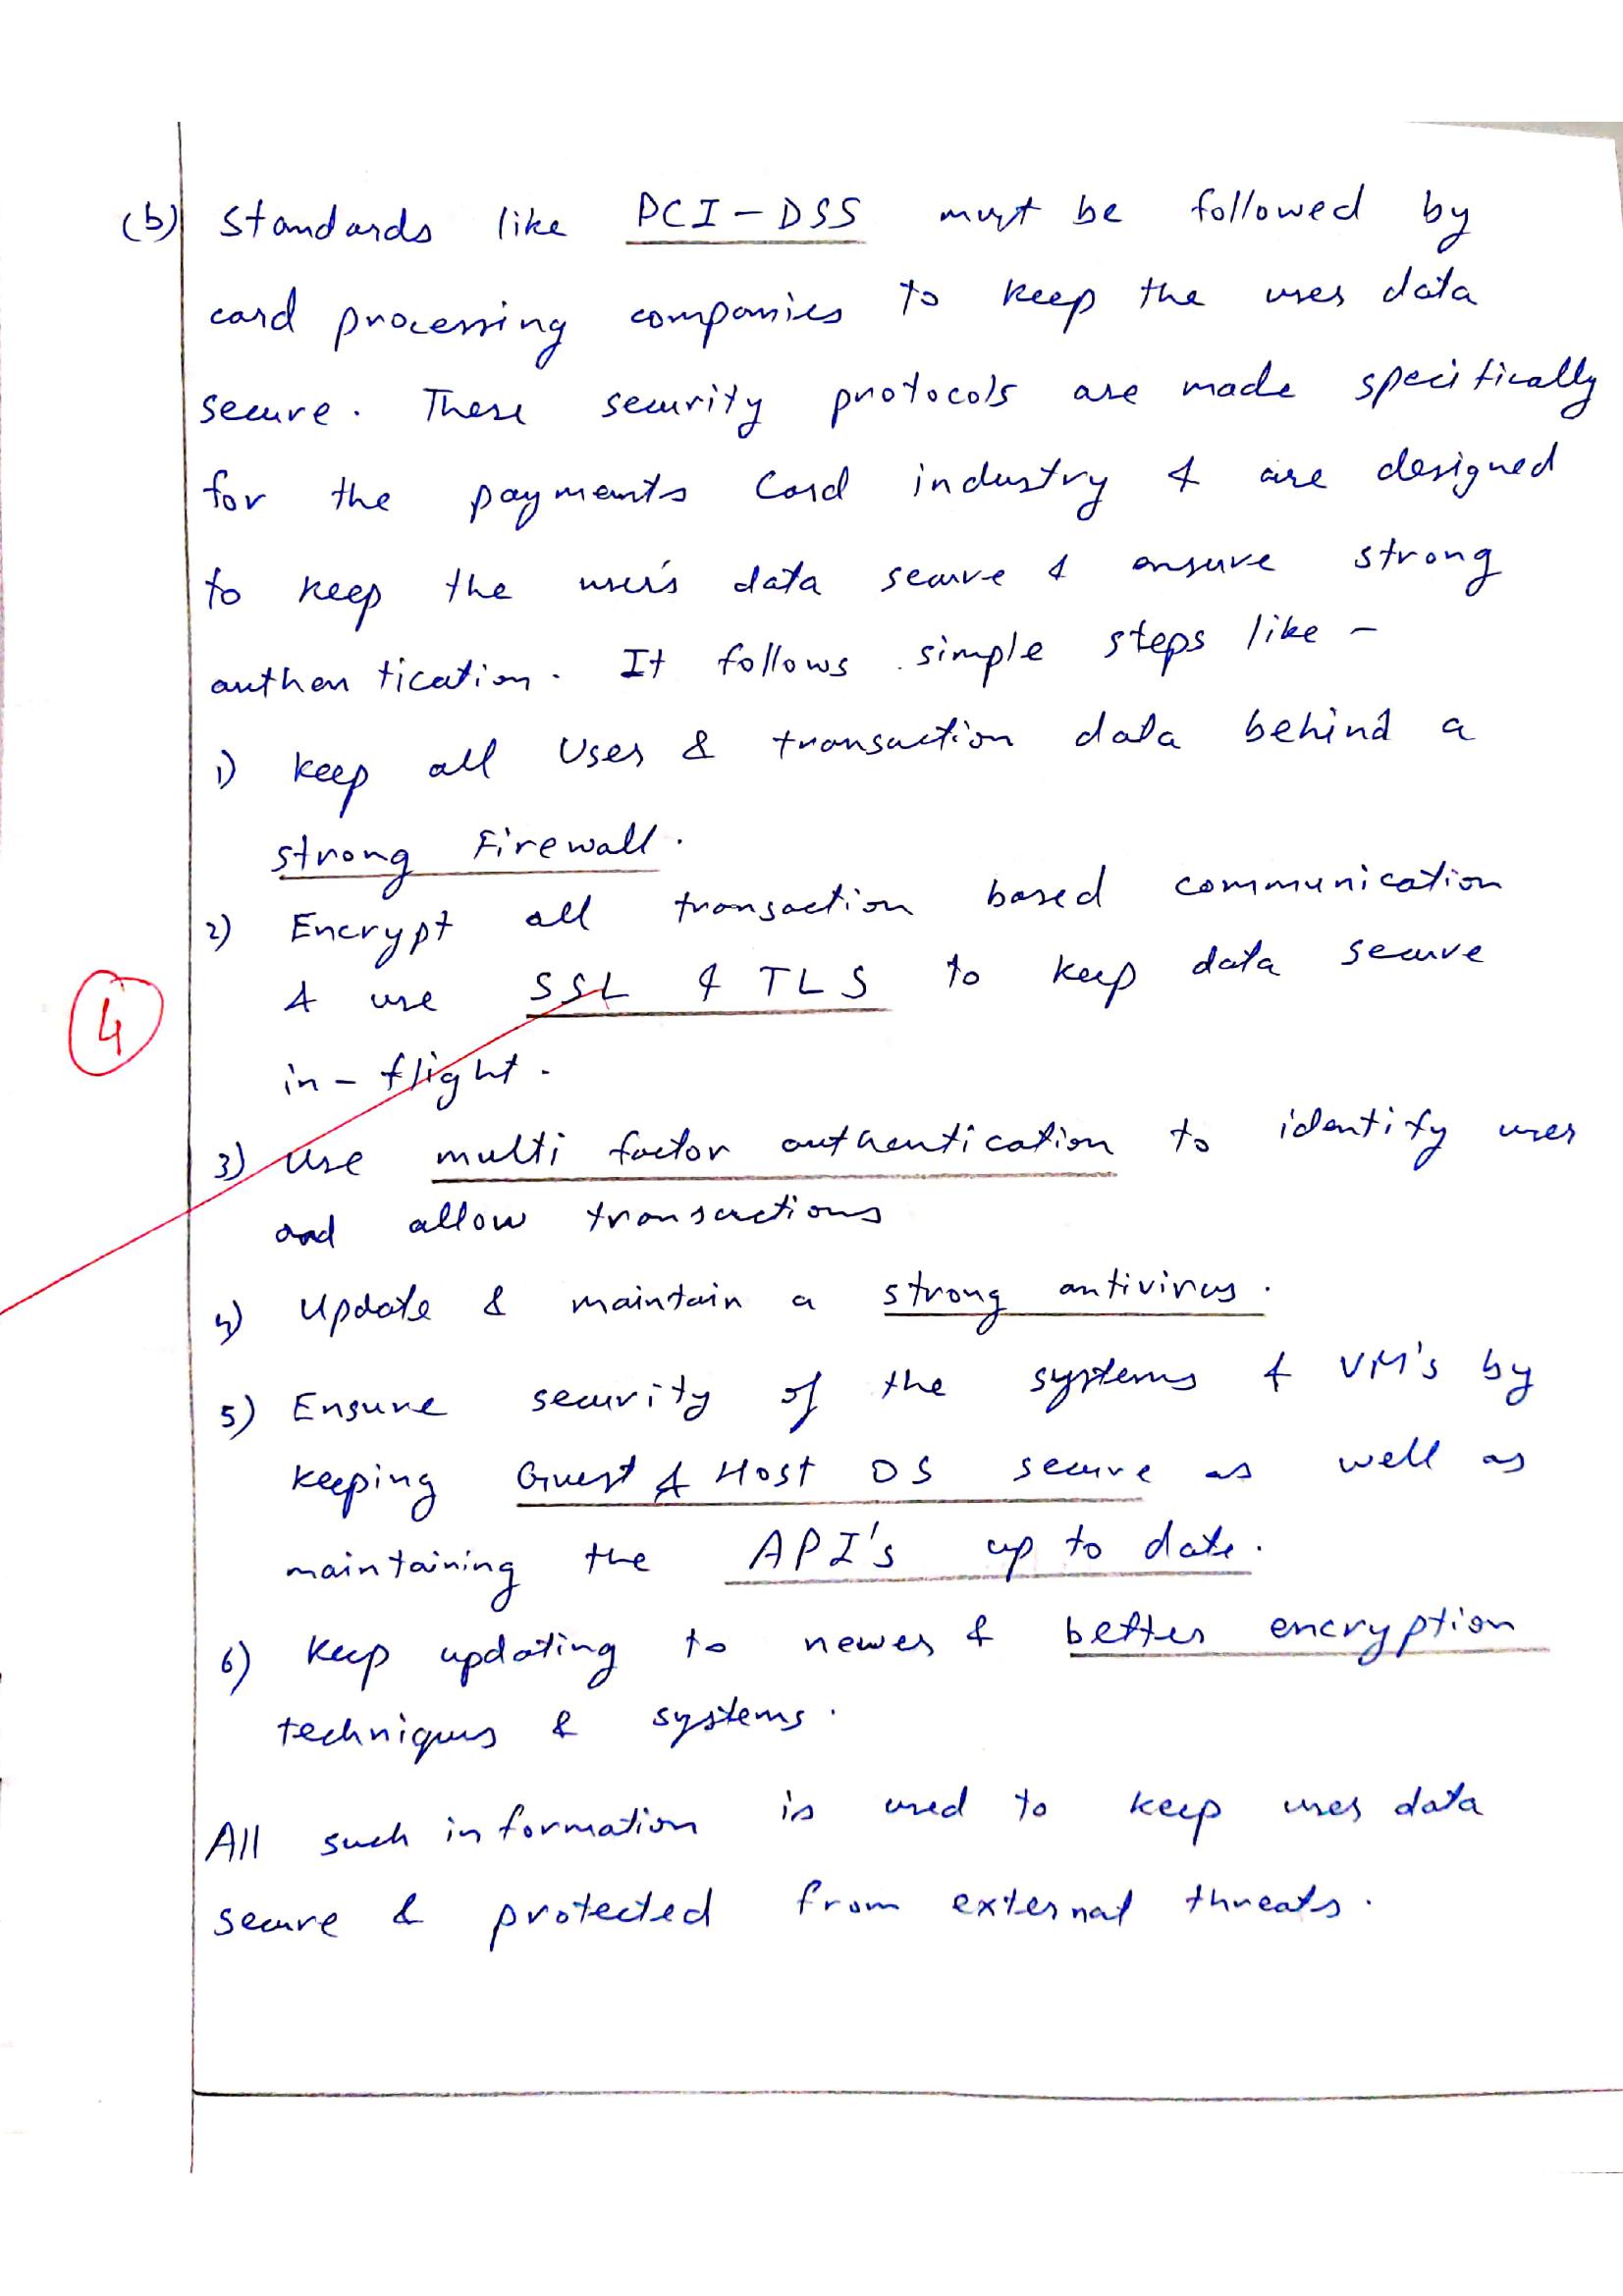 (b) Standards like PCI-DSS must be followed by
card processing companies to keep the user data
secure. These security protocols are made specifically
for the payments Card industry & are designed
to keep the user's data secure & ensure strong
authentication. It follows simple steps like -
1) Keep all User & transaction data behind a
strong Firewall.
2) Encrypt all transaction based communication
& use SSL & TLS to keep data secure
4
in-flight.
3) Use multi factor authentication to identify user
and allow transactions
4) Update & maintain a strong antivirus.
5) Ensure security of the systems & VM's by
keeping Guest & Host OS secure as well as
maintaining the API's up to date.
6) Keep updating to newer & better encryption
techniques & systems.
All such information is used to keep user data
secure & protected from external threats.